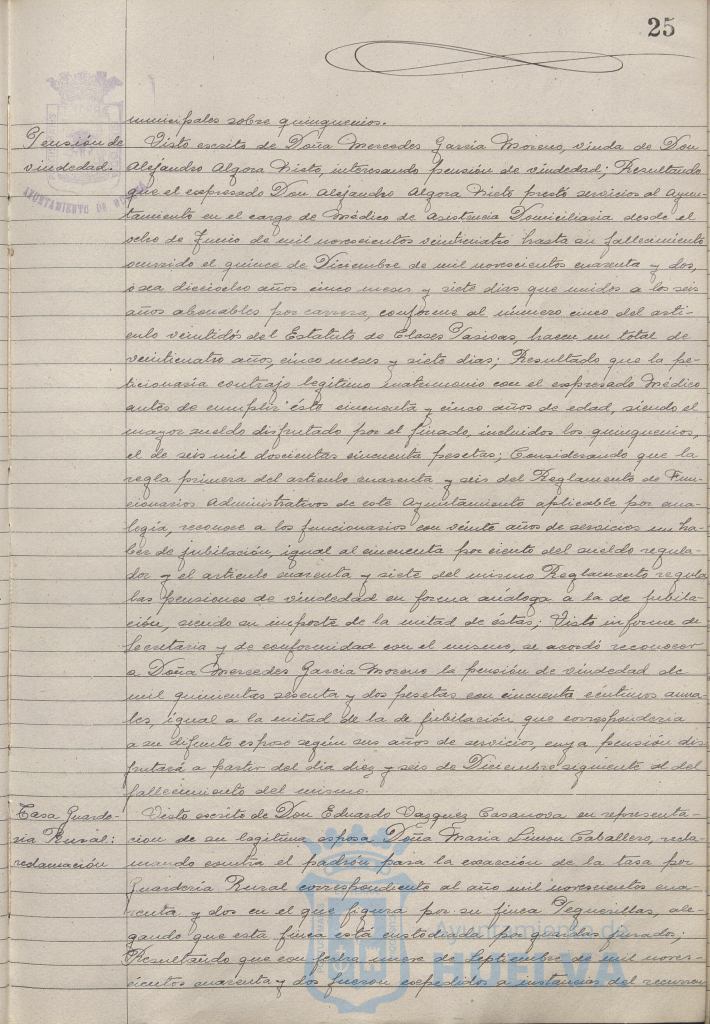 25
municipales sobre quinquenios.
Pensión de
viudedad.
AYUNTAMIENTO DE HUELVA
Visto escrito de Doña Mercedes García Moreno, viuda de Don
Alejandro Algora Nieto, interesando pensión de viudedad; Resultando
que el expresado Don Alejandro Algora Nieto prestó servicios al Ayun-
tamiento en el cargo de Médico de Asistencia Domiciliaria desde el
ocho de Junio de mil novescientos veinticuatro hasta su fallecimiento
ocurrido el quince de Diciembre de mil novescientos cuarenta y dos,
o sea dieciocho años cinco meses y siete dias que unidos a los seis
años abonables por carrera, conforme al número cinco del arti-
culo veintidós del Estatuto de Clases Pasivas, hacen un total de
veinticuatro años, cinco meses y siete dias; Resultado que la pe-
ticionaria contrajo legítimo matrimonio con el expresado Médico
antes de cumplir éste cincuenta y cinco años de edad, siendo el
mayor sueldo disfrutado por el finado, incluidos los quinquenios,
el de seis mil doscientas cincuenta pesetas; Considerando que la
regla primera del articulo cuarenta y seis del Reglamento de Fun-
cionarios Administrativos de este Ayuntamiento aplicable por ana-
logía, reconoce a los funcionarios con veinte años de servicios un ha-
ber de jubilación, igual al cincuenta por ciento del sueldo regula-
dor y el articulo cuarenta y siete del mismo Reglamento regula
las pensiones de viudedad en forma análoga a la de jubila-
ción, siendo su importe de la mitad de éstas; Visto informe de
Secretaria y de conformidad con el mismo, se acordó reconocer
a Doña Mercedes Garcia Moreno la pensión de viudedad de
mil quinientas sesenta y dos pesetas con cincuenta centimos anua-
les, igual a la mitad de la de jubilación que correspondería
a su difunto esposo según sus años de servicio, cuya pensión dis-
frutará a partir del dia diez y seis de Diciembre siguiente al del
fallecimiento del mismo.
Tasa Guarde-
ria Rural:
reclamación
Visto escrito de Don Eduardo Vazquez Casanova en representa-
cion de su legitima esposa Doña Maria Limon Caballero, recla-
mando contra el padrón para la exacción de la tasa por
Guarderia Rural correspondiente al año mil novescientos cua-
renta y dos en el que figura por su finca Peguerillas, ale-
gando que esta finca está custodiada por guardas jurados;
Resultando que con fecha nueve de Septiembre de mil noves-
cientos cuarenta y dos fueron expedidos a instancias del recurren
Ayuntamiento de
HUELVA